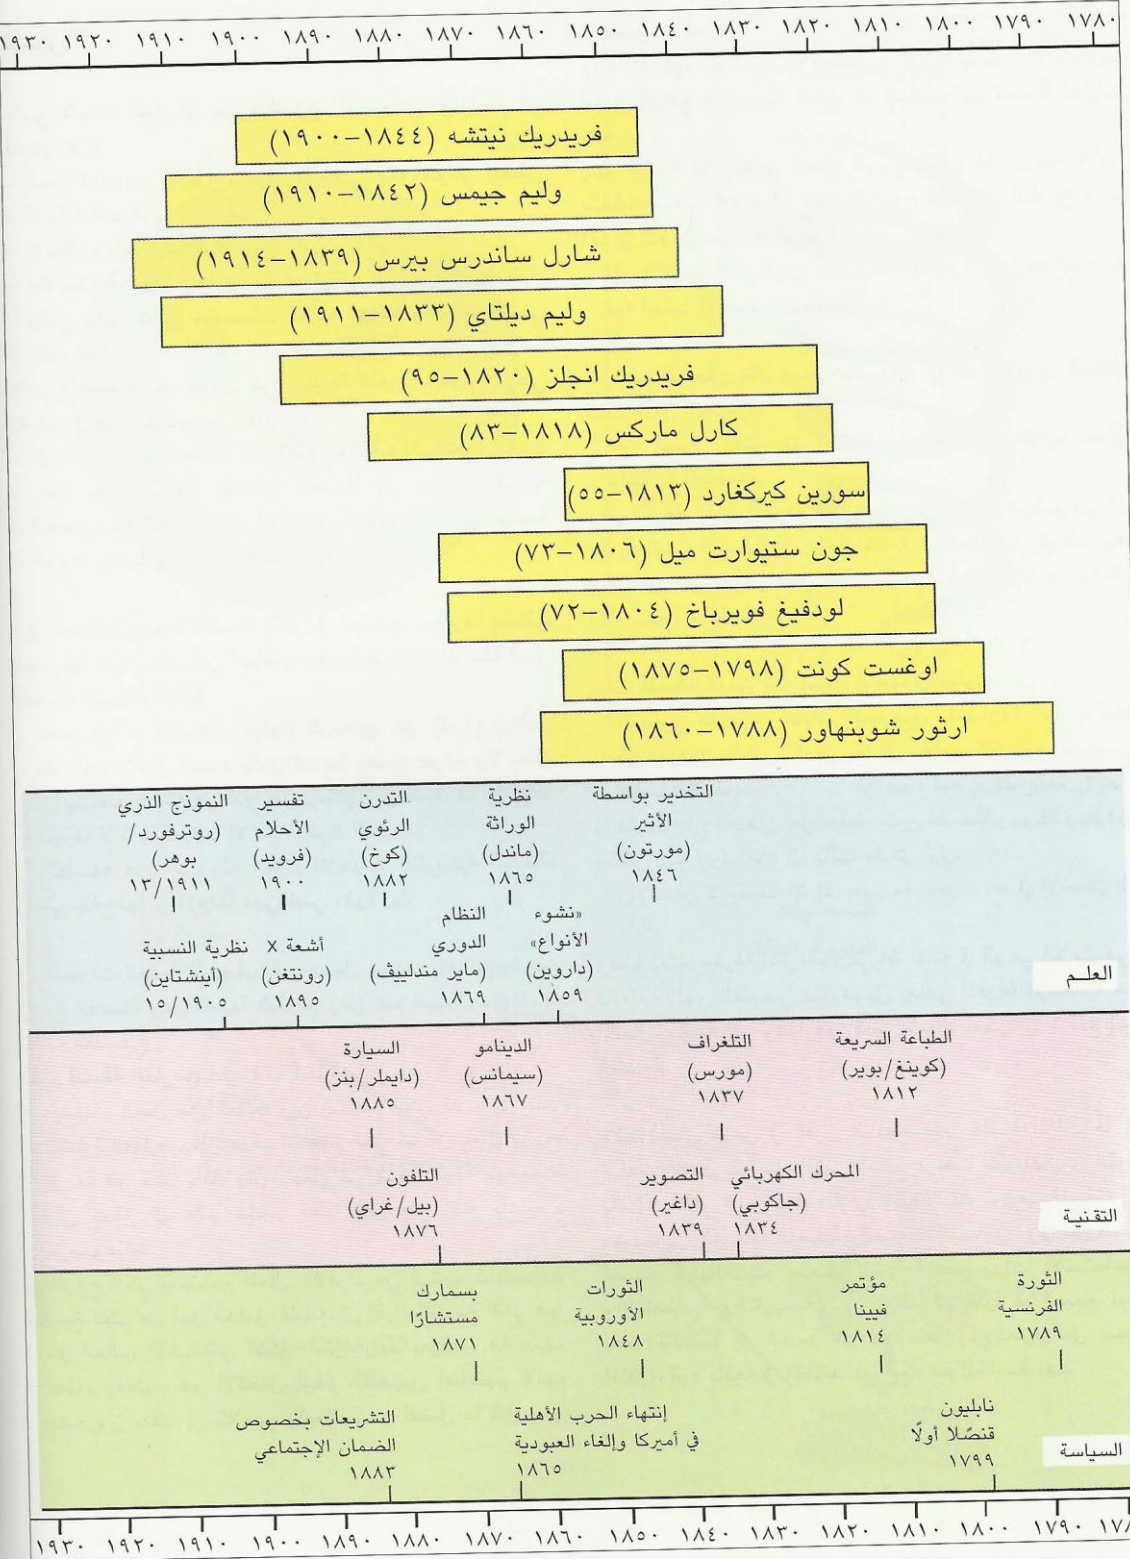 ١٧٨٠ ١٧٩٠ ١٨٠٠ ١٨١٠ ١٨٢٠ ١٨٣٠ ١٨٤٠ ١٨٥٠ ١٨٦٠ ١٨٧٠ ١٨٨٠ ١٨٩٠ ١٩٠٠ ١٩١٠ ١٩٢٠ ١٩٣٠
فريدريك نيتشه (١٨٤٤–١٩٠٠)
وليم جيمس (١٨٤٢–١٩١٠)
شارل ساندرس بيرس (١٨٣٩–١٩١٤)
وليم ديلتاي (١٨٣٣–١٩١١)
فريدريك انجلز (١٨٢٠–٩٥)
كارل ماركس (١٨١٨–٨٣)
سورين كيركغارد (١٨١٣–٥٥)
جون ستيوارت ميل (١٨٠٦–٧٣)
لودفيغ فويرباخ (١٨٠٤–٧٢)
اوغست كونت (١٧٩٨–١٨٧٥)
ارثور شوبنهاور (١٧٨٨–١٨٦٠)
العلـم
التخدير بواسطة
الأثير
(مورتون)
١٨٤٦
نظرية
الوراثة
(ماندل)
١٨٦٥
التدرن
الرئوي
(كوخ)
١٨٨٢
تفسير
الأحلام
(فرويد)
١٩٠٠
النموذج الذري
(روترفورد/
بوهر)
١٣/١٩١١
«نشوء
الأنواع»
(داروين)
١٨٥٩
النظام
الدوري
(ماير مندلييڤ)
١٨٦٩
أشعة X
(رونتغن)
١٨٩٥
نظرية النسبية
(أينشتاين)
١٥/١٩٠٥
التقنية
الطباعة السريعة
(كوينغ/بوير)
١٨١٢
التلغراف
(مورس)
١٨٣٧
الدينامو
(سيمانس)
١٨٦٧
السيارة
(دايملر/بنز)
١٨٨٥
المحرك الكهربائي
(جاكوبي)
١٨٣٤
التصوير
(داغير)
١٨٣٩
التلفون
(بيل/غراي)
١٨٧٦
السياسة
الثورة
الفرنسية
١٧٨٩
مؤتمر
فيينا
١٨١٤
الثورات
الأوروبية
١٨٤٨
بسمارك
مستشارًا
١٨٧١
نابليون
قنصًلا أولًا
١٧٩٩
إنتهاء الحرب الأهلية
في أميركا وإلغاء العبودية
١٨٦٥
التشريعات بخصوص
الضمان الإجتماعي
١٨٨٣
١٧٩٠ ١٨٠٠ ١٨١٠ ١٨٢٠ ١٨٣٠ ١٨٤٠ ١٨٥٠ ١٨٦٠ ١٨٧٠ ١٨٨٠ ١٨٩٠ ١٩٠٠ ١٩١٠ ١٩٢٠ ١٩٣٠